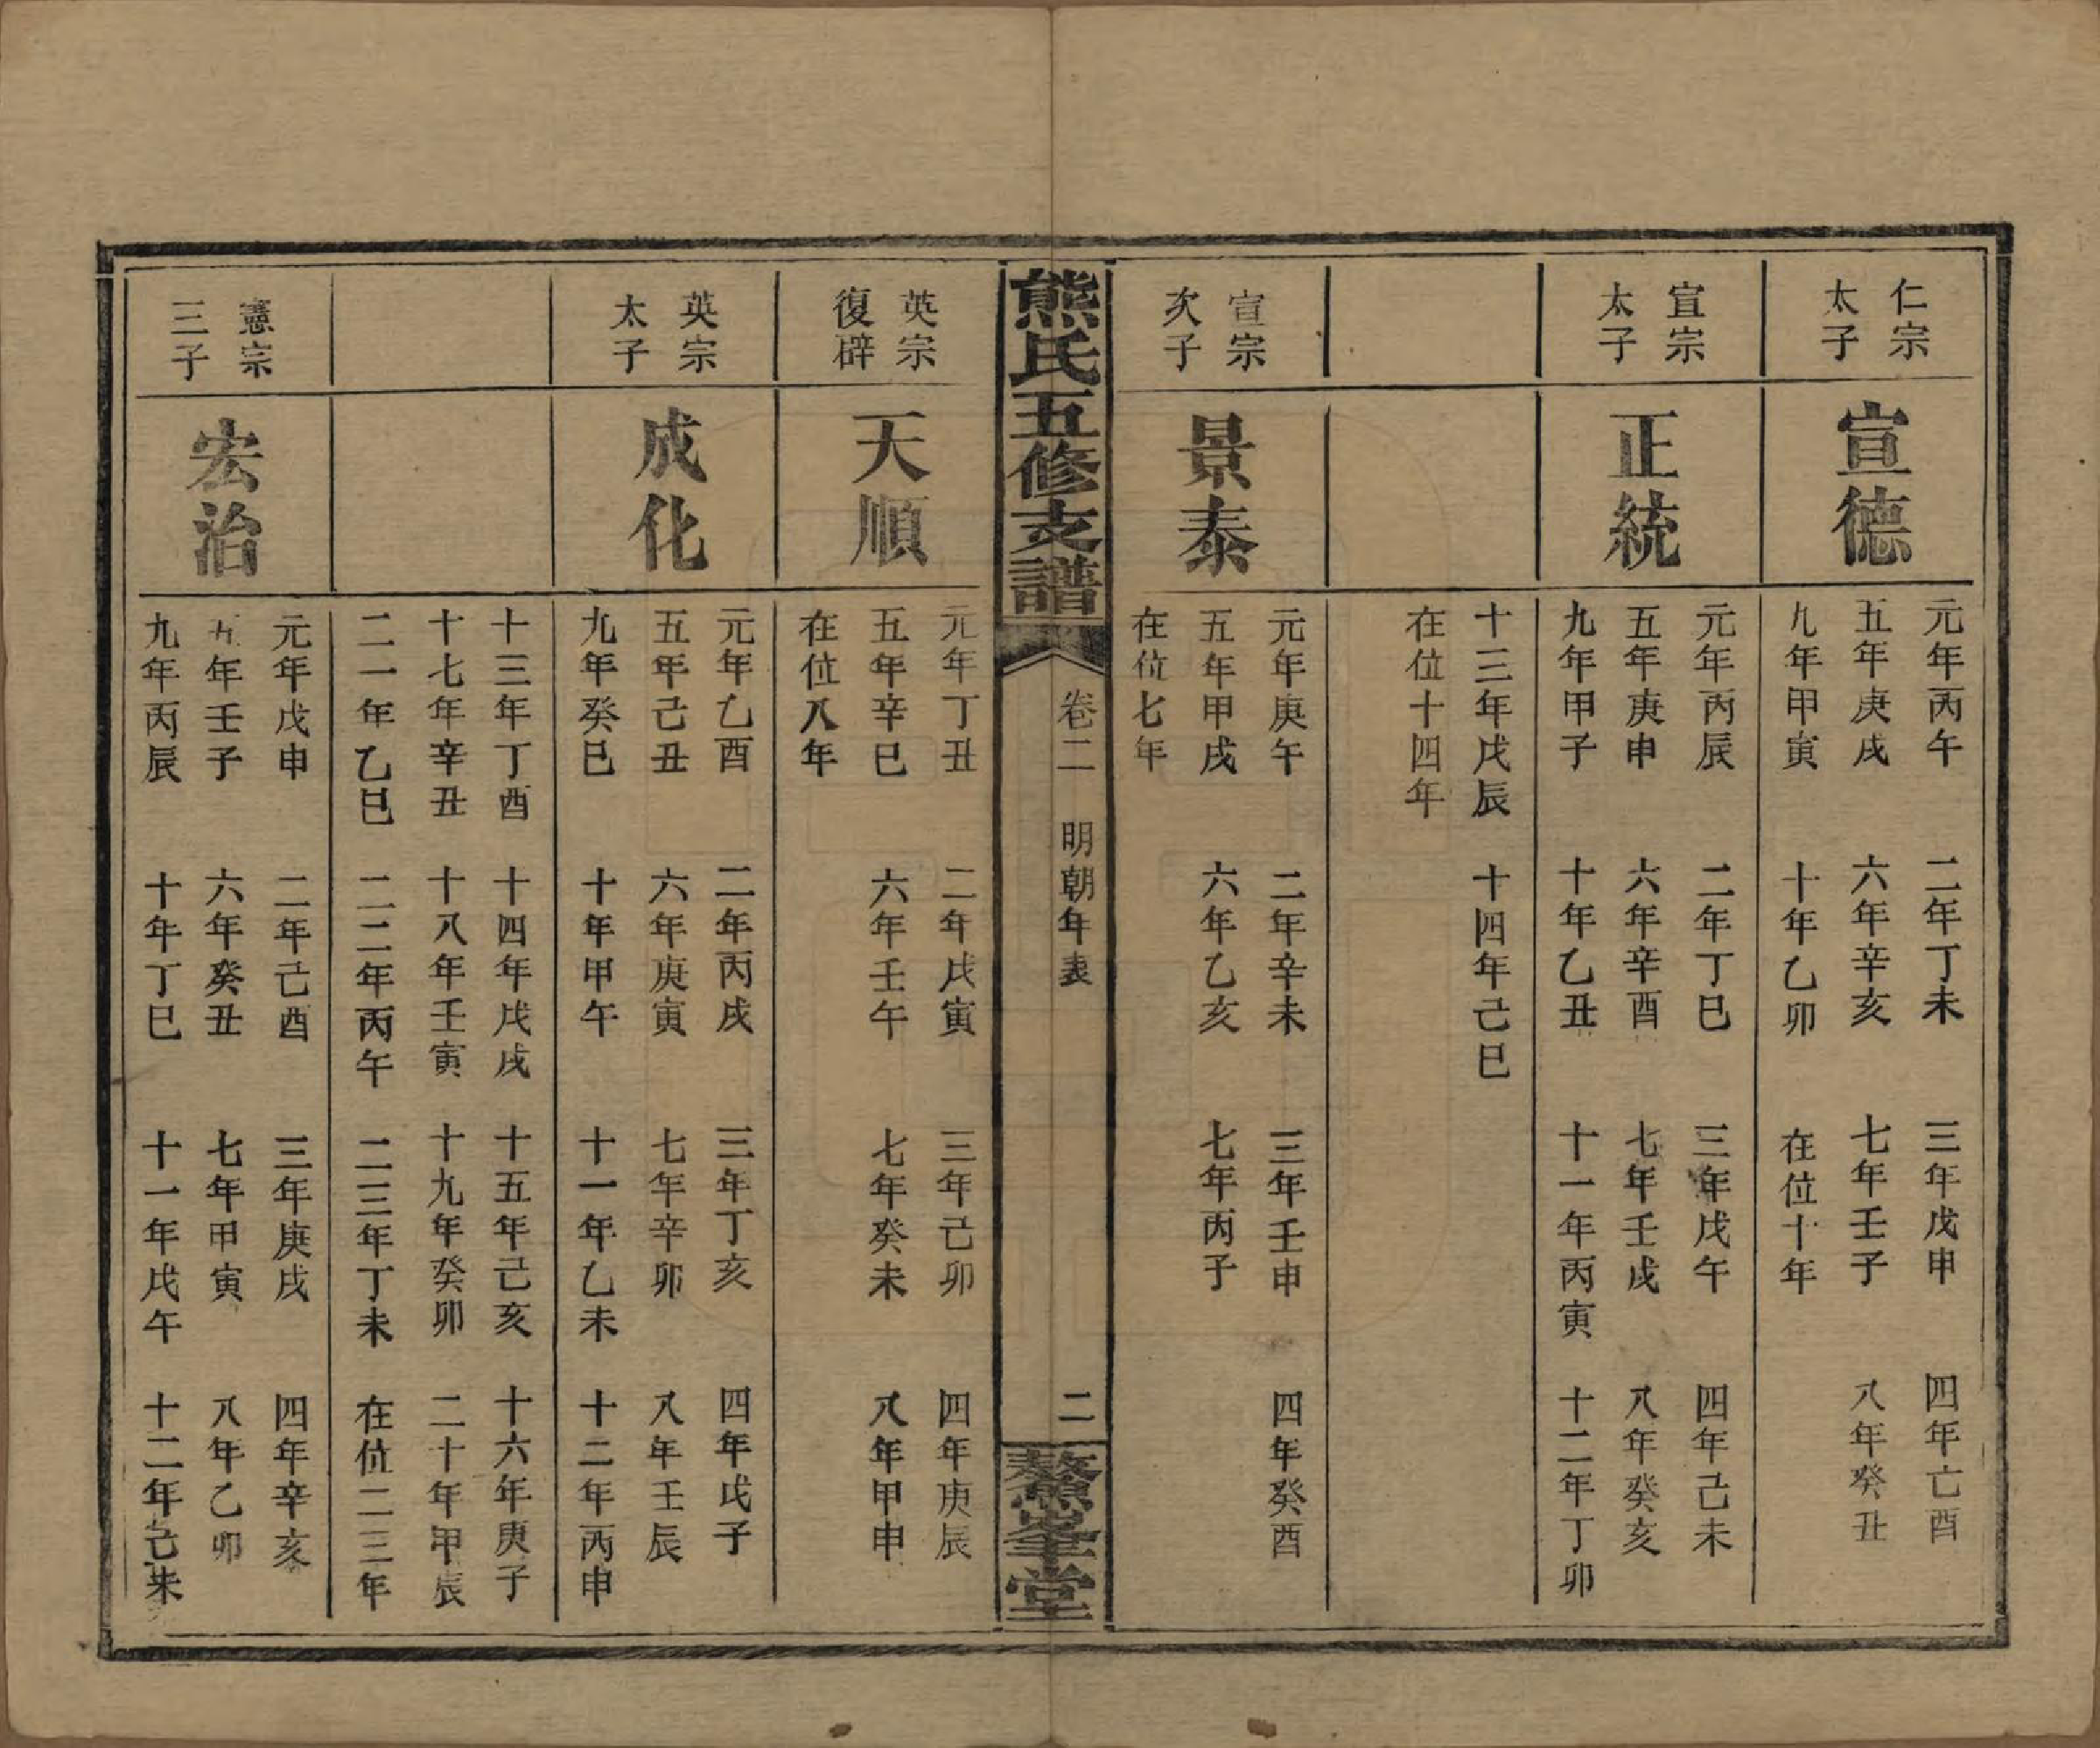 仁宗
太子
宣德
元年丙午 二年丁未 三年戊申 四年亡酉
五年庚戌 六年辛亥 七年壬子 八年癸丑
九年甲寅 十年乙卯 在位十年
宣宗
太子
正統
元年丙辰 二年丁巳 三年戊午 四年己未
五年庚申 六年辛酉 七年壬戌 八年癸亥
九年甲子 十年乙丑 十一年丙寅 十二年丁卯
十三年戊辰 十四年己巳
在位十四年
宣宗
次子
景泰
元年庚午 二年辛未 三年壬申 四年癸酉
五年甲戌 六年乙亥 七年丙子
在位七年
熊氏五修支譜
卷二 明朝年表
二
鰲峯堂
英宗
復辟
天順
元年丁丑 二年戊寅 三年己卯 四年庚辰
五年辛巳 六年壬午 七年癸未 八年甲申
在位八年
英宗
太子
成化
元年乙酉 二年丙戌 三年丁亥 四年戊子
五年己丑 六年庚寅 七年辛卯 八年壬辰
九年癸巳 十年甲午 十一年乙未 十二年丙申
十三年丁酉 十四年戊戌 十五年己亥 十六年庚子
十七年辛丑 十八年壬寅 十九年癸卯 二十年甲辰
二一年乙巳 二二年丙午 二三年丁未 在位二三年
憲宗
三子
宏治
元年戊申 二年己酉 三年庚戌 四年辛亥
五年壬子 六年癸丑 七年甲寅 八年乙卯
九年丙辰 十年丁巳 十一年戊午 十二年己未